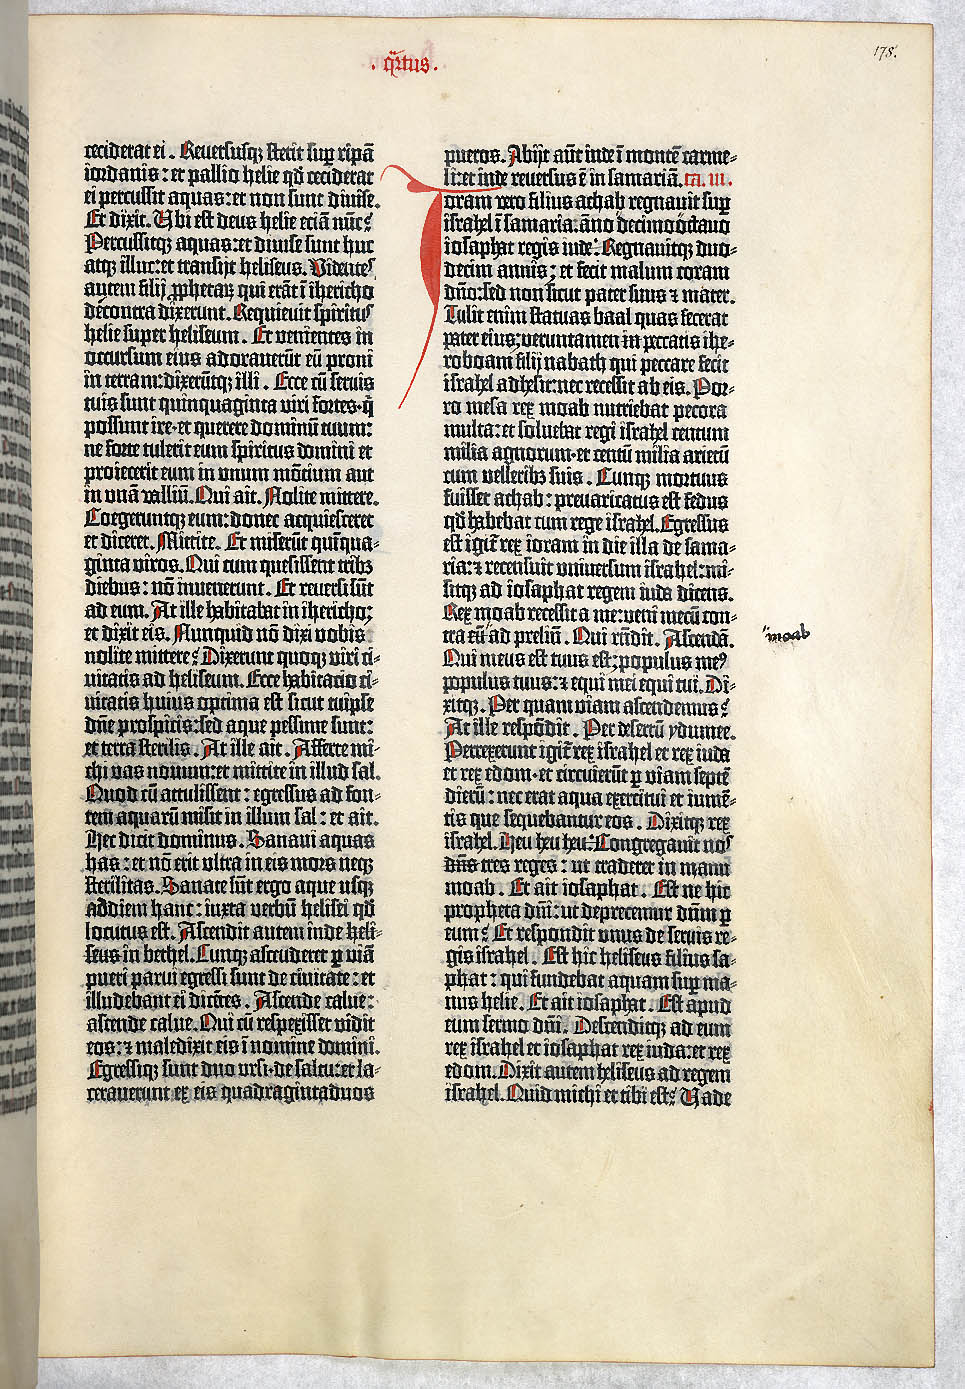 .q̈rtus.
178.
ceciderat ei. Reuersusq; stetit suꝑ ripā
iordanis: et pallio helie qd̄ ceciderat
ei percussit aquas: et non sunt diuise.
Et dixit. Ubi est deus helie eciā nūc?
Percussitq; aquas: et diuise sunt huc
atq; illuc: et transijt heliseus. Videntes
autem filij ꝓphetaꝝ qui erāt ī ihericho
decontra dixerunt. Requieuit spiritus
helie super heliseum. Et venientes in
occursum eius adorauerūt eū proni
in terram: dixerūtq; illi. Ecce cū seruis
tuis sunt quinquaginta viri fortes·q̄
possunt ire·et querere dominū tuum:
ne forte tulerit eum spiritus domini et
proiecerit eum in unum mōtium aut
in unā valliū. Qui ait. Nolite mittere.
Coegeruntq; eum: donec acquiesceret
et diceret. Mittite. Et miserūt quīqua-
ginta viros. Qui cum quesissent tribꝫ
diebus: nō inuenerunt. Et reuersi sūt
ad eum. At ille habitabat in ihericho;
et dixit eis. Nunquid nō dixi vobis
nolite mittere? Dixerunt quoq; viri ci-
uitatis ad heliseum. Ecce habitacio ci-
uitatis huius optima est sicut tuipse
dn̄e prospicis: sed aque pessime sunt:
et terra sterilis. At ille ait. Afferte mi-
chi vas nouum: et mittite in illud sal.
Quod cū attulissent: egressus ad fon-
tem aquarū misit in illum sal: et ait.
Hec dicit dominus. Sanaui aquas
has: et nō erit vltra in eis mors neq;
sterilitas. Sanate sūt ergo aque usq;
addiem hanc: iuxta verbū helisei qd̄
locutus est. Ascendit autem inde heli-
seus in bethel. Cunq; ascenderet ꝑ viā
pueri parui egressi sunt de ciuitate: et
illudebant ei dicētes. Ascende calue:
ascende calue. Qui cū respexisset vidit
eos: ⁊ maledixit eis ī nomine domini.
Egressiq; sunt duo vrsi·de saltu: et la-
cerauerunt ex eis quadragintaduos
pueros. Abijt aūt inde ī montē carme-
li: et inde reuersus ē in samariā. ca. iii.
Ioram vero filius achab regnauit suꝑ
israhel ī samaria: āno decimooctauo
iosaphat regis iude. Regnauitq; duo-
decim annis; et fecit malum coram
dn̄o: sed non sicut pater suus ⁊ mater.
Tulit enim statuas baal quas fecerat
pater eius; veruntamen in peccatis ihe-
roboam filij nabath qui peccare fecit
israhel adhesit: nec recessit ab eis. Por-
ro mesa rex moab nutriebat pecora
multa: et soluebat regi israhel centum
milia agnorum·et centū milia arietū
cum velleribꝫ suis. Cunq; mortuus
fuisset achab: preuaricatus est fedus
qd̄ habebat cum rege israhel. Egressus
est igit̄ rex ioram in die illa de sama-
ria: ⁊ recensuit vniuersum israhel: mi-
sitq; ad iosaphat regem iuda dicens.
Rex moab recessit a me: veni mecū con-
tra eū ad prelium. Qui rn̄dit. Ascendā.
Qui meus est tuus est; populus meꝰ
populus tuus: ⁊ equi mei equi tui. Di-
xitq;. Per quam viam ascendemus?
At ille respōdit. Per desertū ydumee.
Perrexerunt igit̄ rex israhel et rex iuda
et rex edom·et circuierūt ꝑ viam septē
dierū: nec erat aqua exercitui et iumē-
tis que sequebantur eos. Dixitq; rex
israhel. Heu heu heu. Congregauit nos
dn̄s tres reges: ut traderet in manu
moab. Et ait iosaphat. Est ne hic
propheta dn̄i: ut deprecemur dn̄m ꝑ
eum? Et respondit vnus de seruis re-
gis israhel. Est hic heliseus filius sa-
phat: qui fundebat aquam suꝑ ma-
nus helie. Et ait iosaphat. Est apud
eum sermo dn̄i. Descenditq; ad eum
rex israhel et iosaphat rex iuda: et rex
edom. Dixit autem heliseus ad regem
israhel. Quid michi et tibi est? Vade
"moab